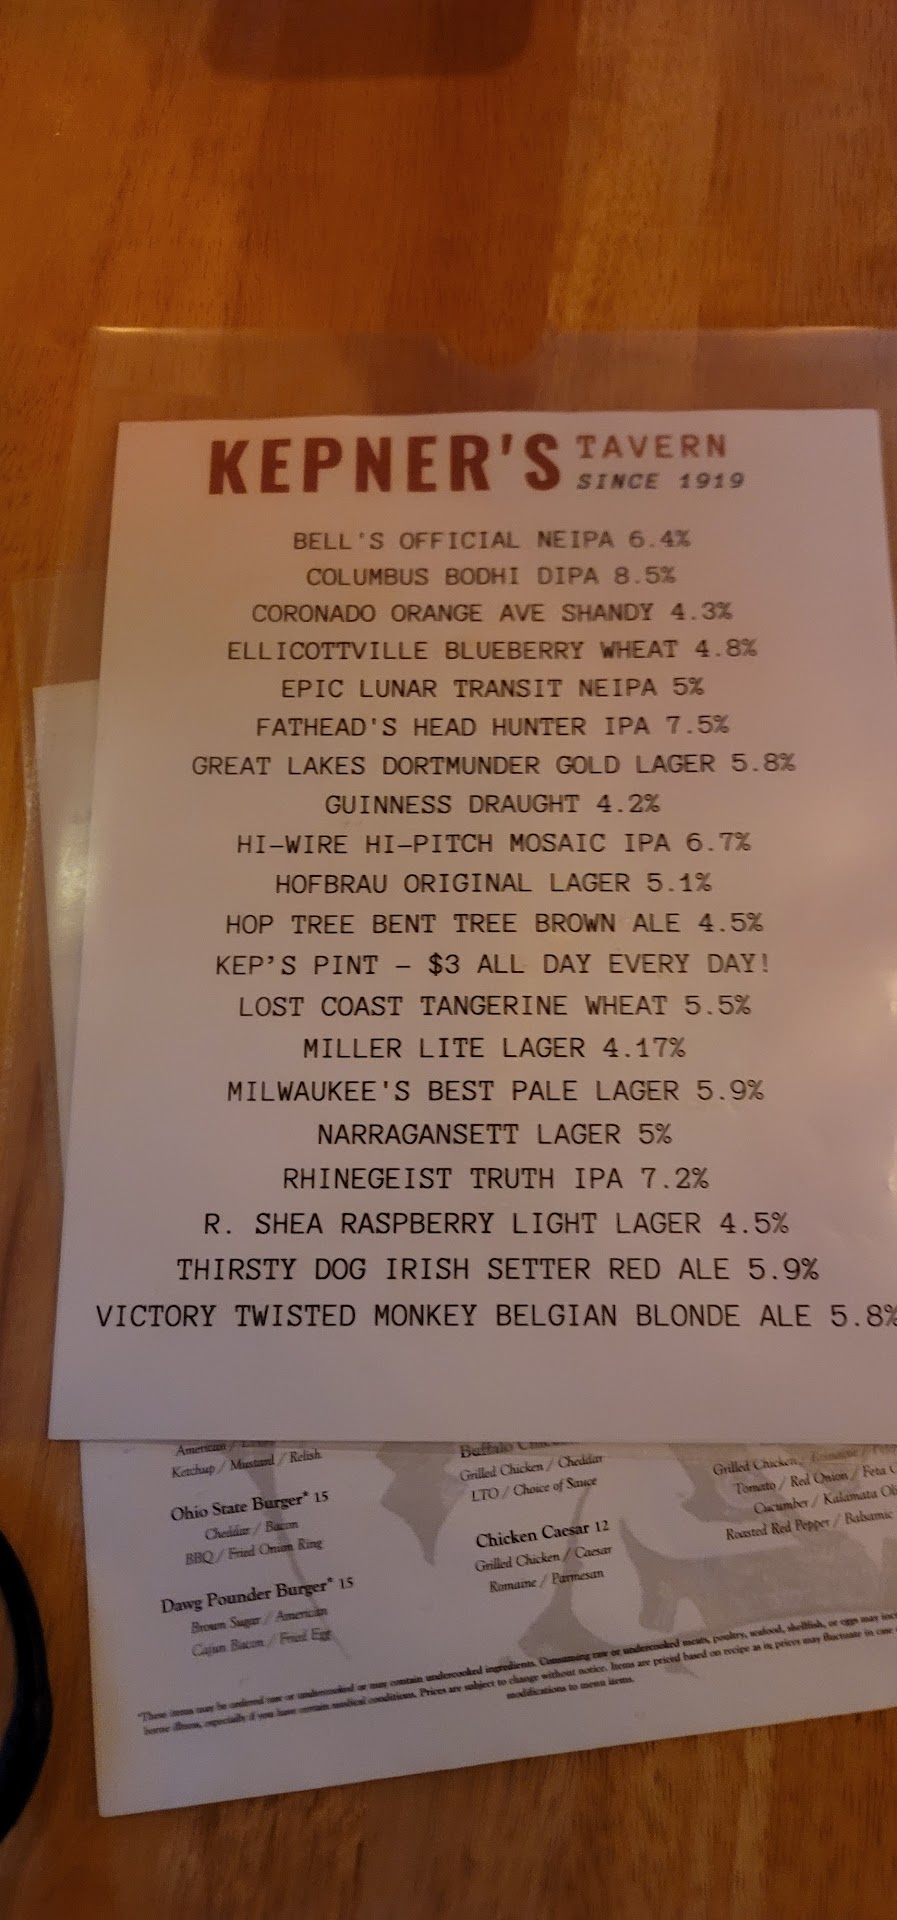 KEPNER'S TAVERN
SINCE 1919
BELL'S OFFICIAL NEIPA 6.4%
COLUMBUS BODHI DIPA 8.5%
CORONADO ORANGE AVE SHANDY 4.3%
ELLICOTTVILLE BLUEBERRY WHEAT 4.8%
EPIC LUNAR TRANSIT NEIPA 5%
FATHEAD'S HEAD HUNTER IPA 7.5%
GREAT LAKES DORTMUNDER GOLD LAGER 5.8%
GUINNESS DRAUGHT 4.2%
HI-WIRE HI-PITCH MOSAIC IPA 6.7%
HOFBRAU ORIGINAL LAGER 5.1%
HOP TREE BENT TREE BROWN ALE 4.5%
KEP'S PINT – $3 ALL DAY EVERY DAY!
LOST COAST TANGERINE WHEAT 5.5%
MILLER LITE LAGER 4.17%
MILWAUKEE'S BEST PALE LAGER 5.9%
NARRAGANSETT LAGER 5%
RHINEGEIST TRUTH IPA 7.2%
R. SHEA RASPBERRY LIGHT LAGER 4.5%
THIRSTY DOG IRISH SETTER RED ALE 5.9%
VICTORY TWISTED MONKEY BELGIAN BLONDE ALE 5.8%
American /
Ketchup / Mustard / Relish
Ohio State Burger* 15
Cheddar / Bacon
BBQ / Fried Onion Ring
Dawg Pounder Burger* 15
Brown Sugar / American
Cajun Bacon / Fried Egg
Buffalo
Grilled Chicken / Cheddar
LTO / Choice of Sauce
Chicken Caesar 12
Grilled Chicken / Caesar
Romaine / Parmesan
Grilled Chicken,
Tomato / Red Onion / Feta
Cucumber / Kalamata
Roasted Red Pepper / Balsamic
*These items may be ordered raw or undercooked or may contain undercooked ingredients. Consuming raw or undercooked meats, poultry, seafood, shellfish, or eggs may
borne illness, especially if you have certain medical conditions. Prices are subject to change without notice. Items are priced based on recipe as is; prices may fluctuate in
modifications to menu items.